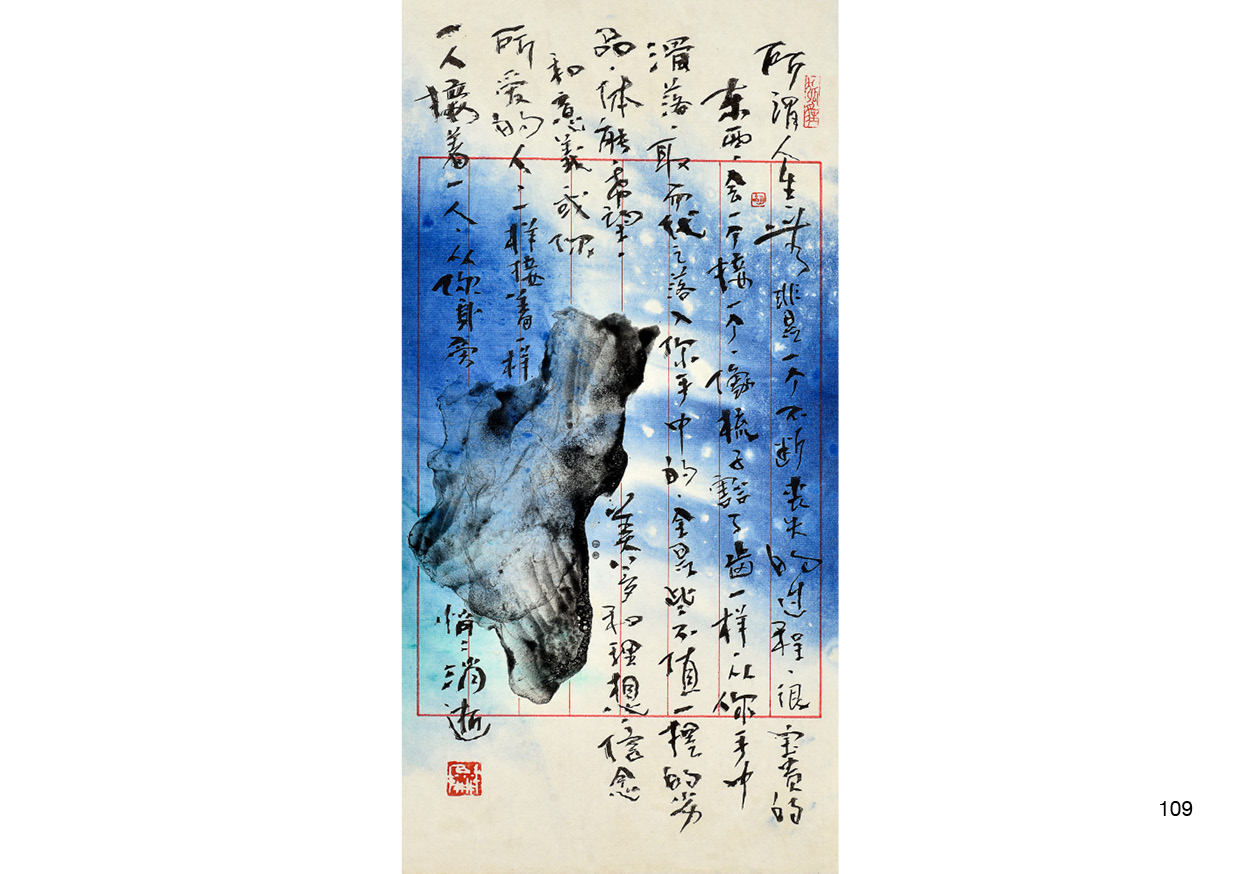 所谓人生、无非是一个不断丧失的过程、很宝贵的
东西、会一个接一个、像梳子豁了齿一样、从你手中
滑落、取而代之落入你手中的、全是些不值一提的劣
品、体能、希望、美梦和理想、信念
和意義或你
所爱的人、一样接着一样
一人接着一人、从你身旁悄悄消逝
109